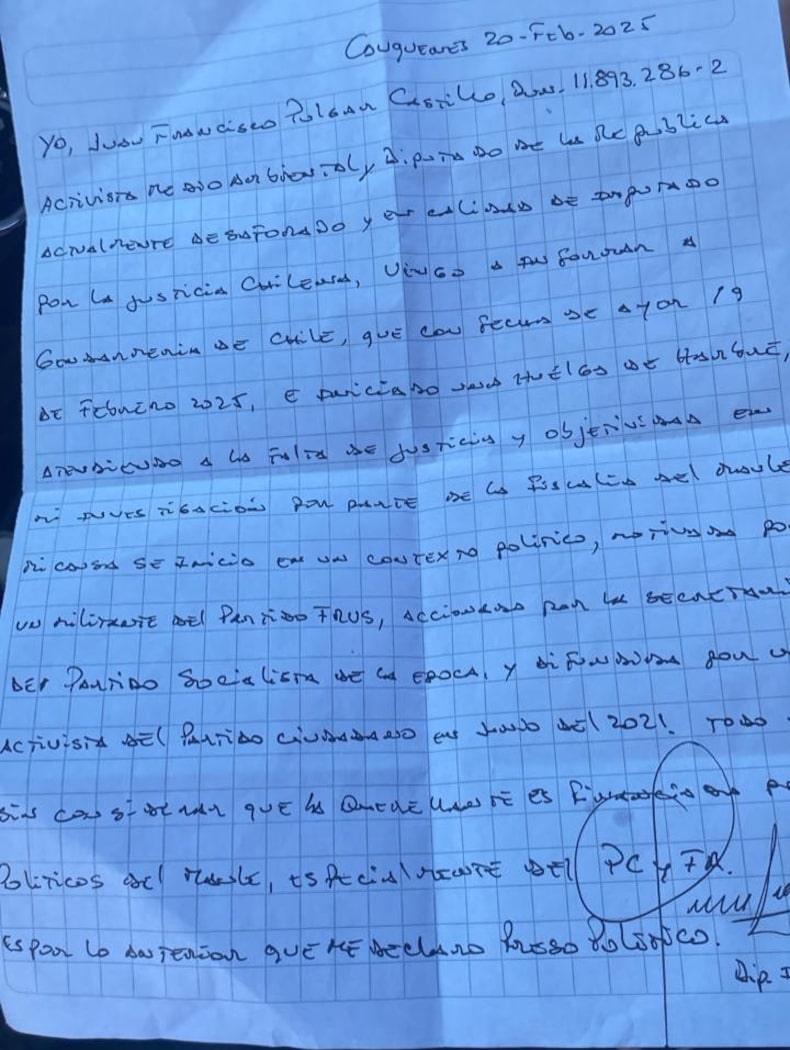 Cauquenes 20-Feb-2025
Yo, Juan Francisco Pulgar Castillo, 11.893.286-2
Activista medio ambiental y Diputado de la Republica
actualmente desaforado y en calidad de imputado
por la justicia Chilena, vengo a informar a
Gendarmeria de Chile, que con fecha de ayer 19
de Febrero 2025, e iniciado una huelga de Hambre,
atendiendo a la falta de justicia y objetividad en
mi investigación por parte de la Fiscalia del Maule
mi causa se inicio en un contexto politico, motivada po
un militante del Partido FRVS, accionada por la Secretari
del Partido Socialista de la epoca, y difundida por u
activista del Partido ciudadano en Junio del 2021. Todo
sin considerar que la Querellante es Funcionaria
Politicos del Maule, especialmente del PC y FA.
Es por lo anterior que me declaro Preso Politico.
Dip.